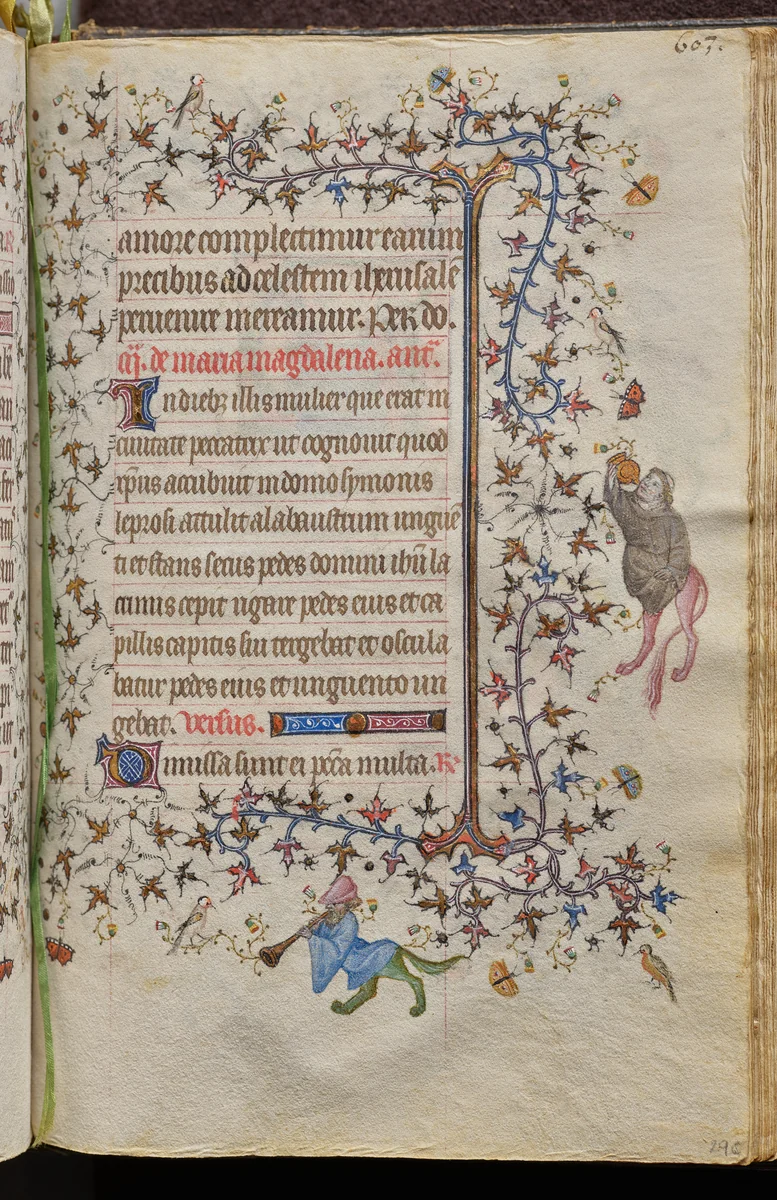 607.
amore complectimur earum
precibus ad celestem iherusalē
peruenire mereamur. Per do.
de maria magdalena. ant'.
In dieb3 illis mulier que erat in
ciuitate peccatrix ut cognouit quod
xp̄us accubuit in domo symonis
leprosi attulit alabaustrum unguē
ti et stans secus pedes domini ihū la
crimis cepit rigare pedes eius et ca
pillis capitis sui tergebat et oscula
batur pedes eius et unguento un
gebat. versus.
Dimissa sunt ei pcc̄a multa. R